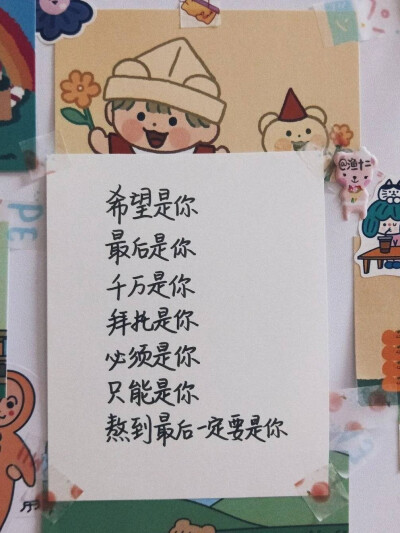 @渔十二
希望是你
最后是你
千万是你
拜托是你
必须是你
只能是你
熬到最后一定要是你